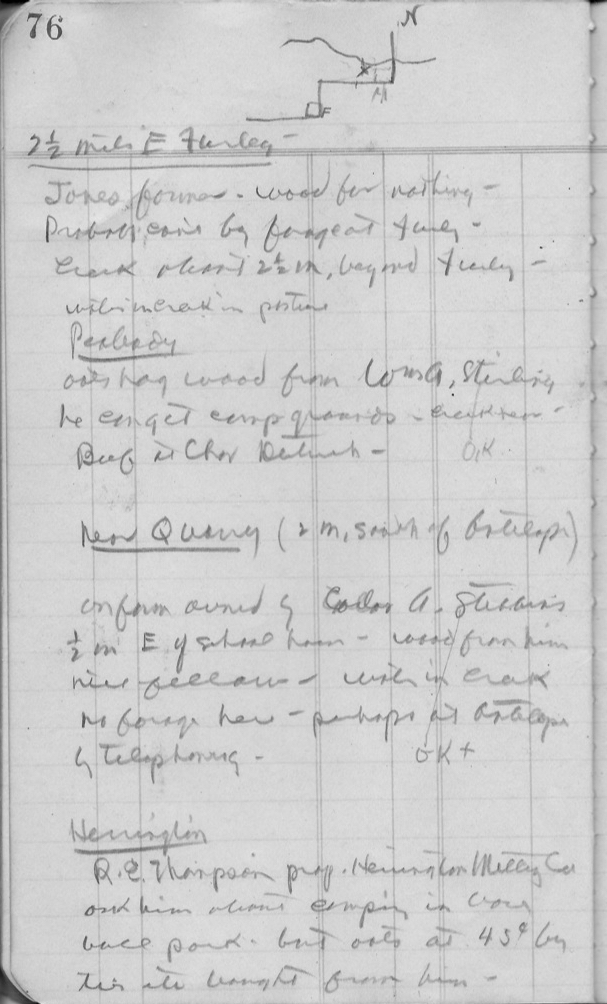 76
N
F
2½ miles E Furley -
Jones farmer - wood for nothing -
Probab; corn by forage at Furley -
Creek about 2½ m, beyond Furley -
water in creek in pasture
Peabody
oats hay wood from Sterling
he can get camp grounds - creek near -
Beef at Chas - O.K
Near Quarry (2 m, south of Antelope)
on farm owned by A. Stebbins
½ m E of school house - wood from him
nice fellow - water in creek
no forage here - perhaps at Antelope
by telephoning - O K +
Herington
R. E. Thompson prop. Herington Milling Co
ask him about camping in
ball park - but oats at 45¢ bu
bought from him -